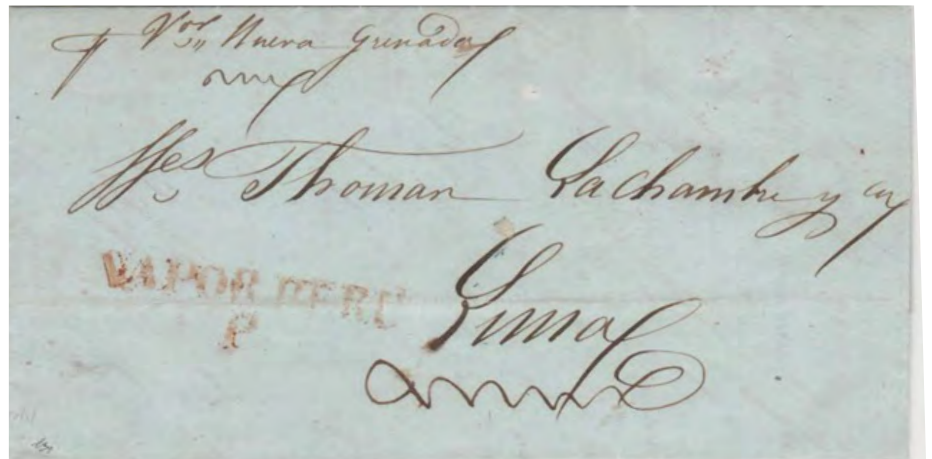 p Vor Nueva Grenada
SSes Thomas Lachambre y Ca
VAPOR PERU
P
Lima